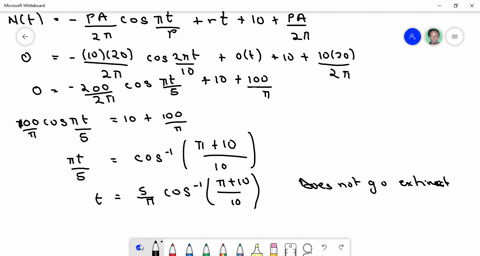 Microsoft Whiteboard
N(t) = - PA/2π cos πt/P + rt + 10 + PA/2π
0 = - (10)(20)/2π cos 2πt/10 + 0(t) + 10 + 10(20)/2π
0 = - 200/2π cos πt/5 + 10 + 100/π
100/π cos πt/5 = 10 + 100/π
πt/5 = cos⁻¹ (π+10/10)
t = 5/π cos⁻¹ (π+10/10) Does not go extinct